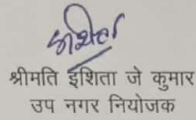 इशिता
श्रीमति इशिता जे कुमार
उप नगर नियोजक